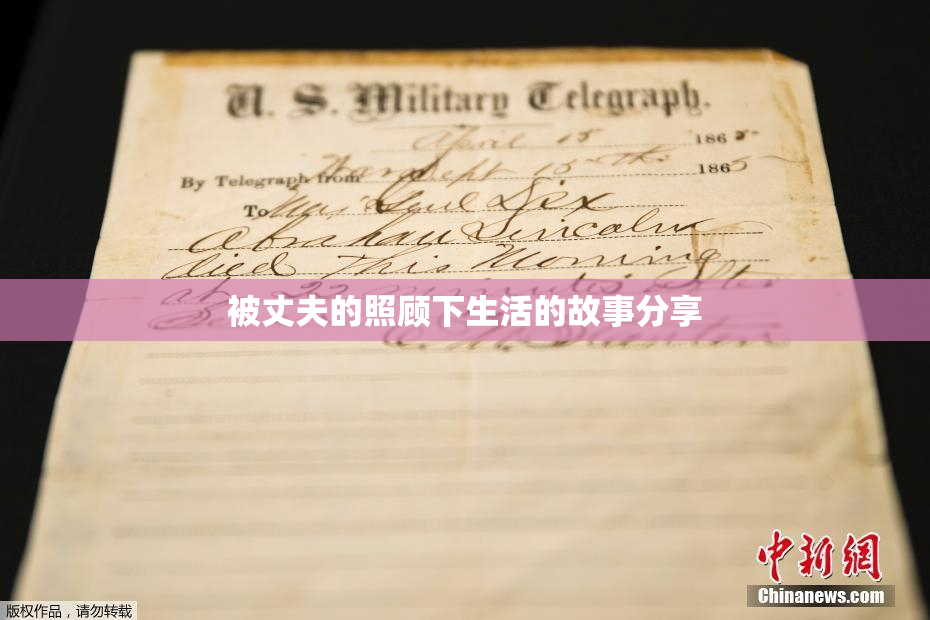 U. S. Military Telegraph.
April 15 1865
By Telegraph from War Dept 15th 1865
To Maj Genl Dix
Abraham Lincoln
died This Morning
at 22 minutes after
被丈夫的照顾下生活的故事分享
E. M. Stanton
中新网
Chinanews.com
版权作品，请勿转载